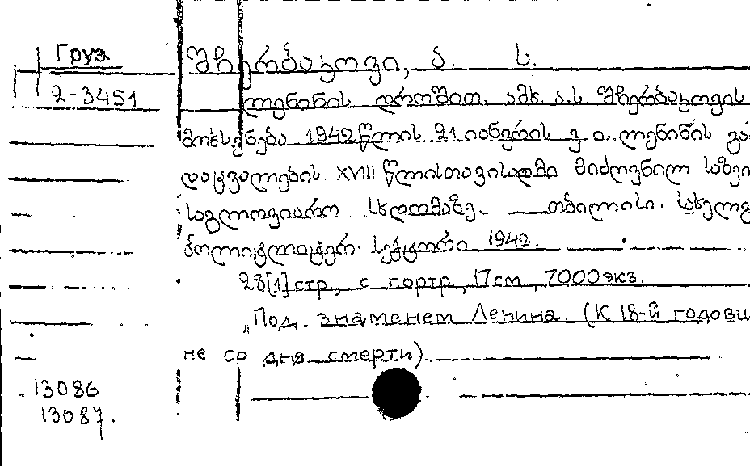 Груз.
2-3451
შჩერბაკოვი, ა. ს.
ლენინის დროშით. ამხ. ა.ს. შჩერბაკოვის
მოხსენება 1942 წლის 21 იანვარს ვ. ი. ლენინის გა
დაცვალების XVIII წლისთავისადმი მიძღვნილ საზეი
სამგლოვიარო სხდომაზე. თბილისი. სახელგ
პოლიტლიტერ. სექტორი 1942.
28[1] стр, с портр, 17см, 7000 экз.
„Под. знаменем Ленина. (К 18-й годовщи
не со дня смерти)
13086
13087.